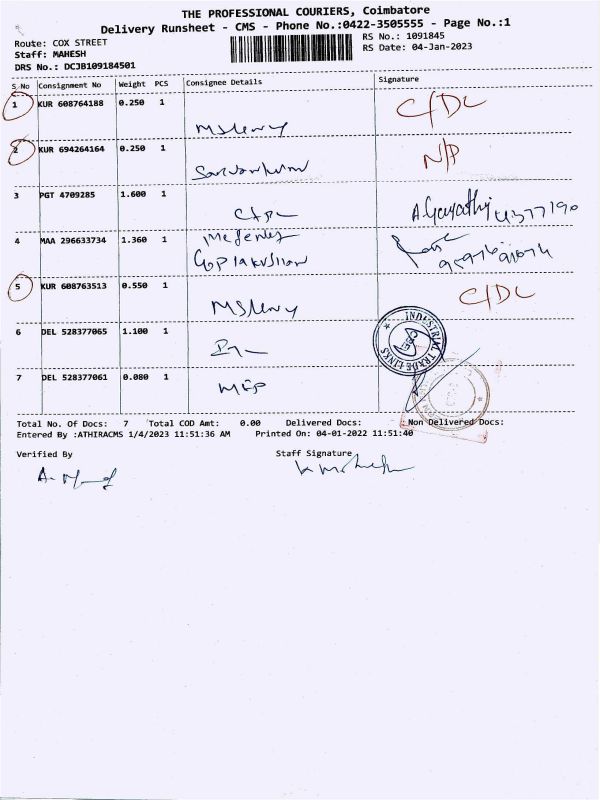 THE PROFESSIONAL COURIERS, Coimbatore
Delivery Runsheet - CMS - Phone No.:0422-3505555 - Page No.:1
Route: COX STREET
RS No.: 1091845
Staff: MAHESH
RS Date: 04-Jan-2023
DRS No.: DCJB109184501
S.No Consignment No Weight PCS Consignee Details Signature
1 KUR 608764188 0.250 1 C/DL
2 KUR 694264164 0.250 1 N/P
3 PGT 4709285 1.600 1 A.Gayathi
4 MAA 296633734 1.360 1
5 KUR 608763513 0.550 1 C/DL
6 DEL 528377065 1.100 1
INDUSTRIAL TRADE LINKS
CBE
7 DEL 528377061 0.080 1
Total No. Of Docs: 7 Total COD Amt: 0.00 Delivered Docs: Non Delivered Docs:
Entered By :ATHIRACMS 1/4/2023 11:51:36 AM Printed On: 04-01-2022 11:51:40
Verified By Staff Signature